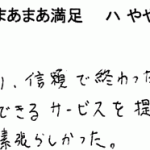 まあまあ満足 ハ やや
り、信頼で終わった
できる サービスを 提
素張らしかった。